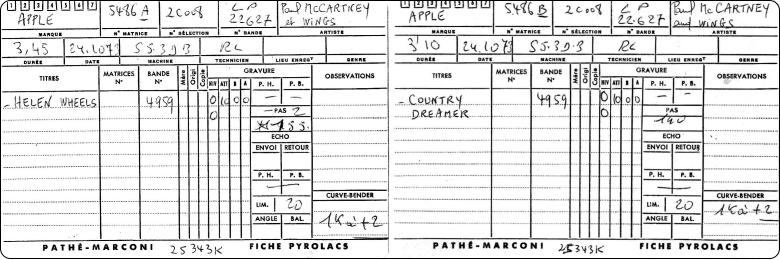 1 2 3 4 5 6 7
APPLE 5486 A 2C008 LP 22.627 Paul McCARTNEY et WINGS
MARQUE N° MATRICE N° SÉLECTION N° GENRE
3,45 24.10.73 S539B RC
DURÉE DATE MACHINE TECHNICIEN LIEU ENREGT GENRE
TITRES MATRICES N° BANDE N° Mère Origi Copie GRAVURE OBSERVATIONS
NIV ATT B A P. H. P. B.
- HELEN WHEELS 4959 0 10 0 0 - -
0 PAS 2
ECHO
ENVOI RETOUR
P. H. P. B.
LIM. 20 CURVE-BENDER
ANGLE BAL. 1K à +2
PATHÉ-MARCONI 25343K FICHE PYROLACS
1 2 3 4 5 6 7
APPLE 5486 B 2C008 LP 22.627 Paul McCARTNEY and WINGS
MARQUE N° MATRICE N° SÉLECTION
3/10 24.10.73 S539B RC
DURÉE DATE MACHINE TECHNICIEN LIEU ENREGT GENRE
TITRES MATRICES N° BANDE N° Mère Origi Copie GRAVURE OBSERVATIONS
NIV ATT B A P. H. P. B.
- COUNTRY 4959 0 10 0 0 - -
DREAMER 0 PAS
190
ECHO
ENVOI RETOUR
P. H. P. B.
LIM. 20 CURVE-BENDER
ANGLE BAL. 1K à +2
PATHÉ-MARCONI 25343K FICHE PYROLACS